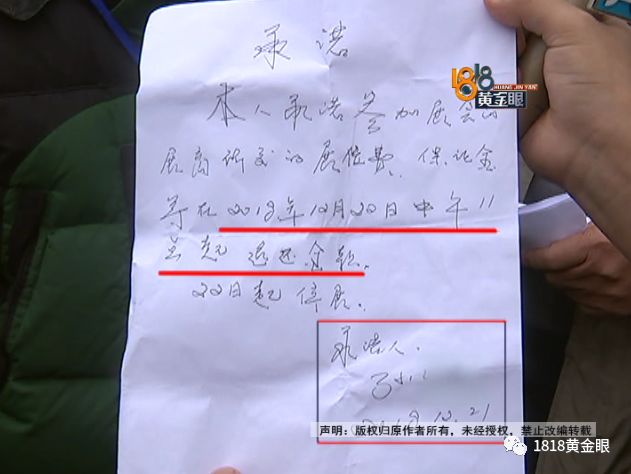 承诺
1818
HUANG JIN YAN
黄金眼
本人承诺参加展会的
展商所交的展位费、保证金
等在2018年12月22日中午11
点起退还全款。
22日起停展。
承诺人.
2018.12.21
声明：版权归原作者所有，未经授权，禁止改编转载
1818黄金眼